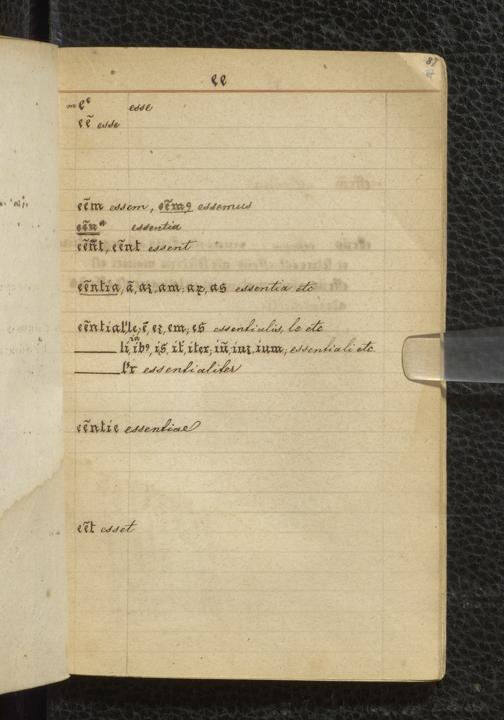 87
ee
eᵉ esse
eē esse
eēm essem, eēmꝯ essemus
eēnᵃ essentia
eēn̄t, eēnt essent
eēntia, ā, aꝝ, am; aꝝ, as essentia etc
eēntial'le; ē, eꝝ, em, es essentialis, le etc
li, ibꝯ, is, it', iter, iū, iuꝝ, ium; essentiali etc.
l'r essentialiter
eēntie essentiae
eēt esset